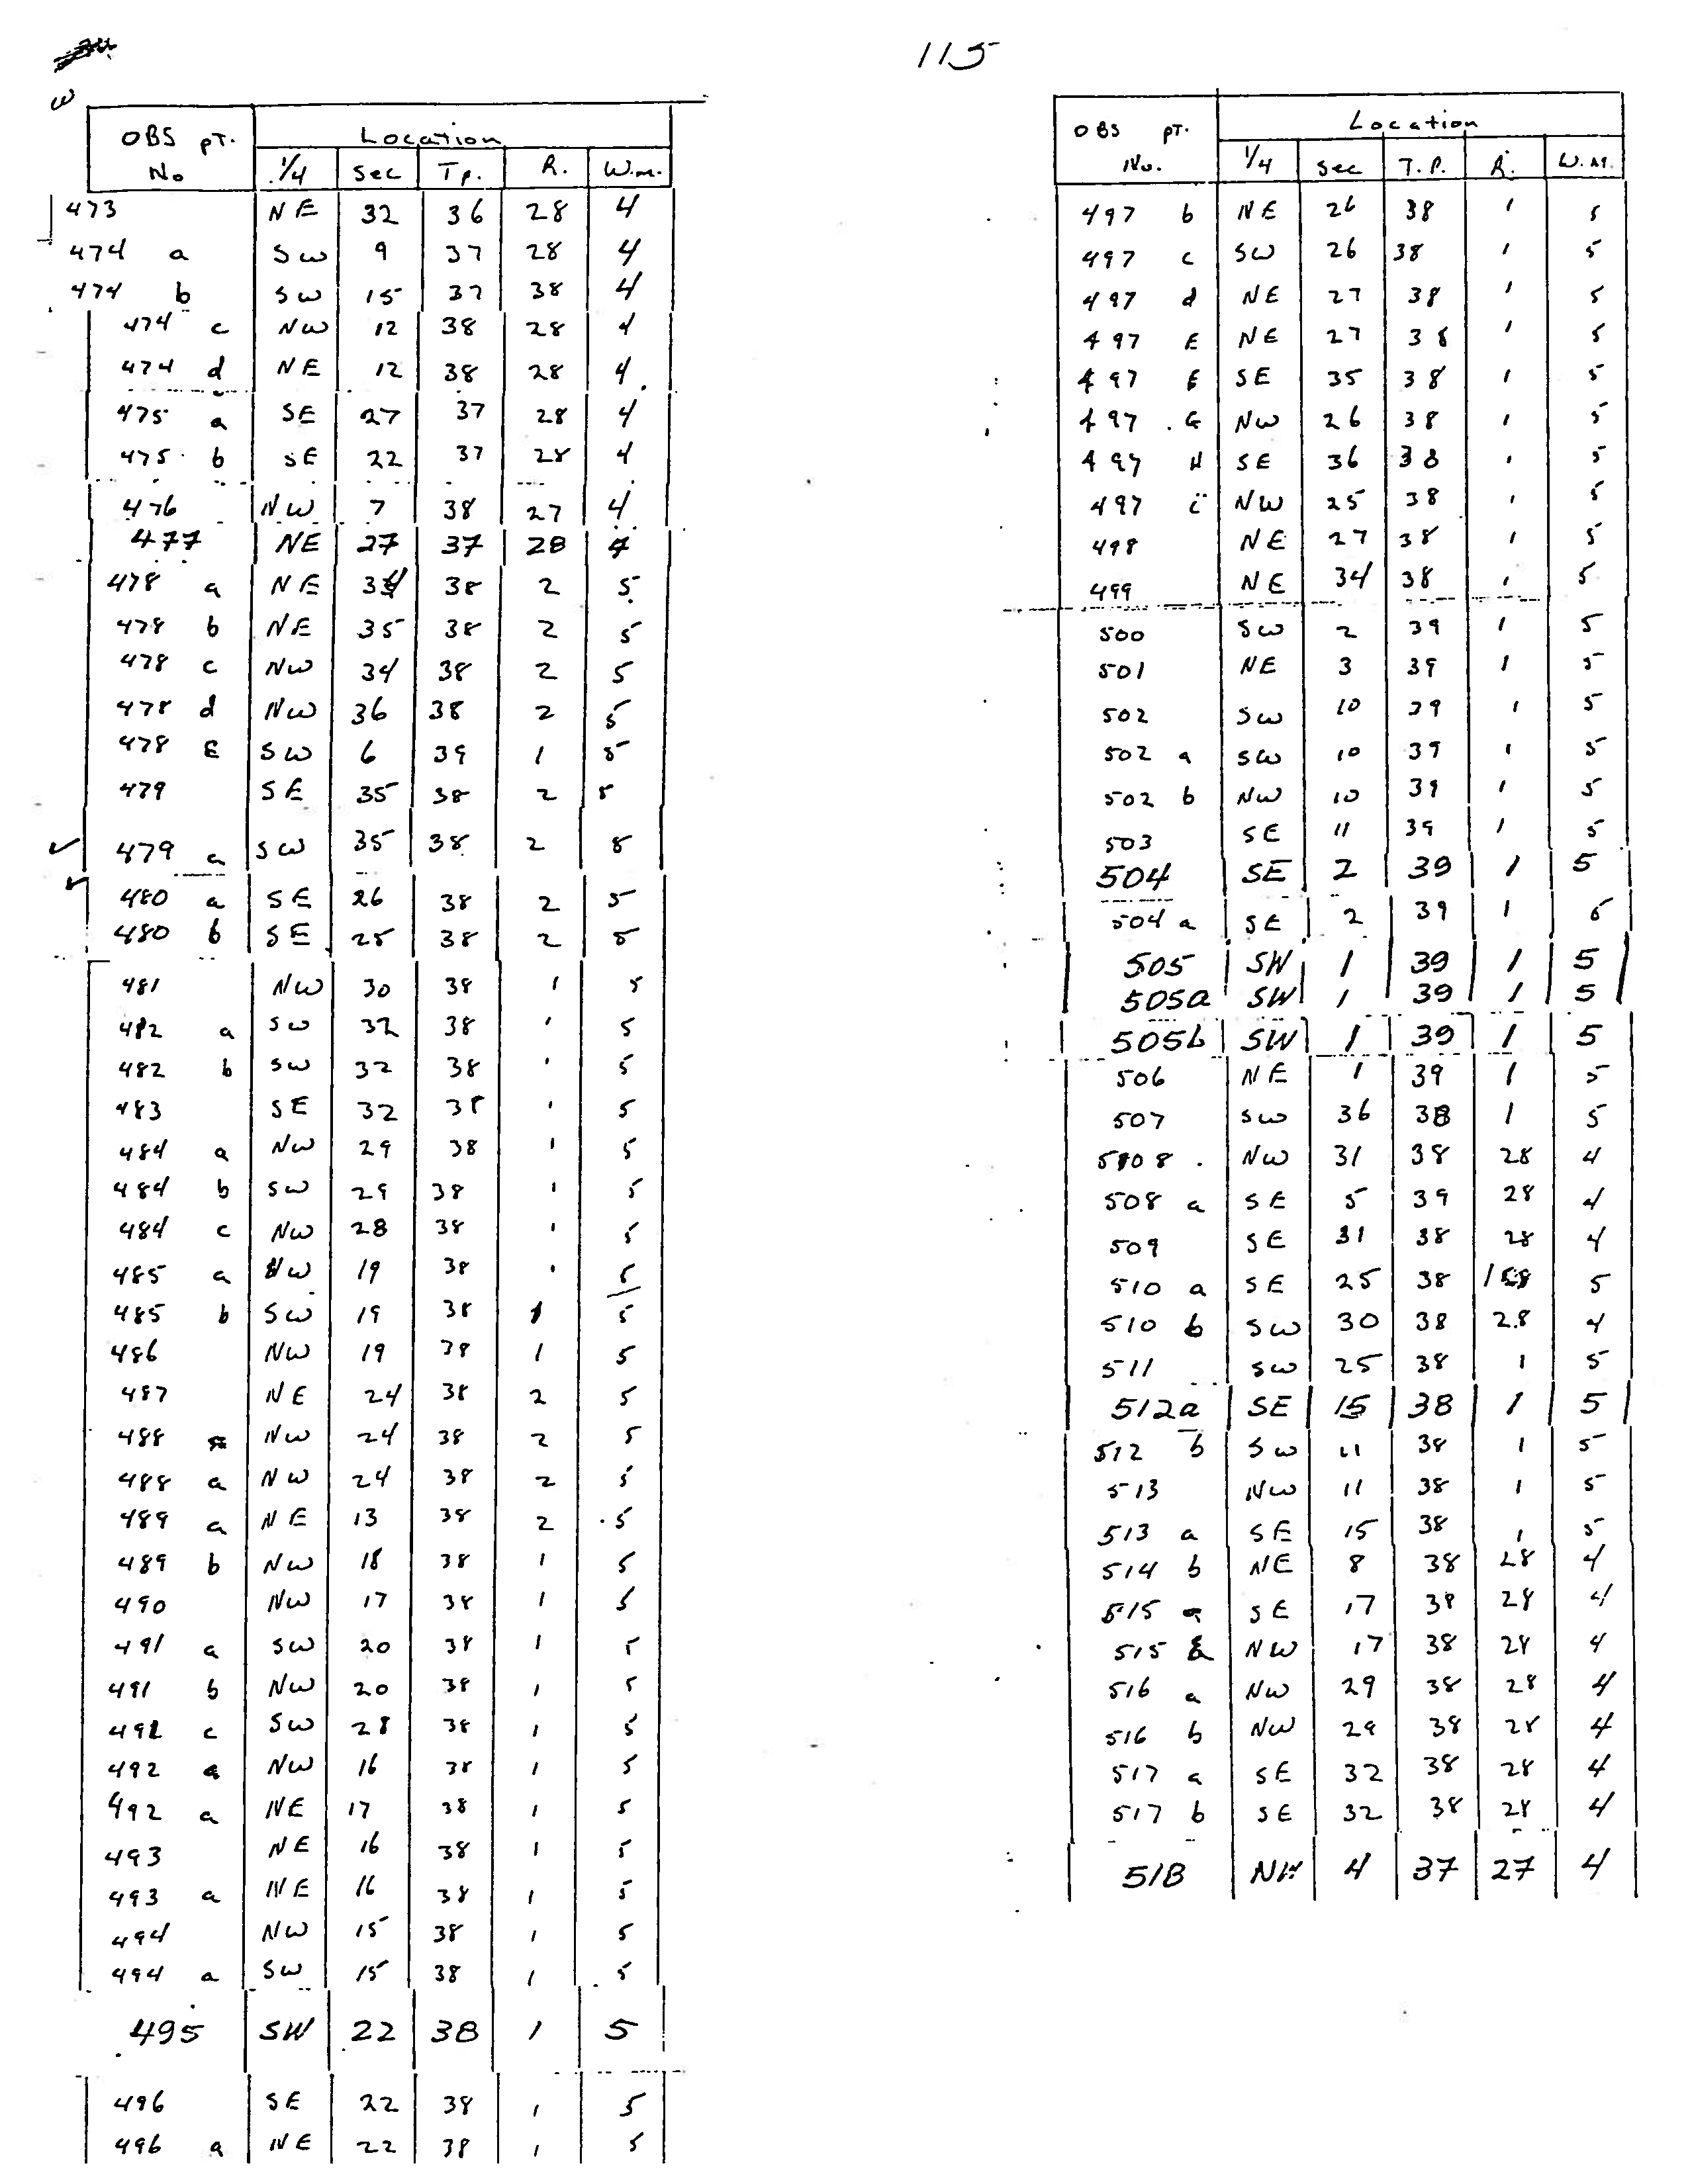 115
OBS pt. No Location
1/4 Sec Tp. R. W.m.
473 NE 32 36 28 4
474 a SW 9 37 28 4
474 b SW 15 37 38 4
474 c NW 12 38 28 4
474 d NE 12 38 28 4
475 a SE 27 37 28 4
475 b SE 22 37 28 4
476 NW 7 38 27 4
477 NE 27 37 28 4
478 a NE 34 38 2 5
478 b NE 35 38 2 5
478 c NW 34 38 2 5
478 d NW 36 38 2 5
478 E SW 6 39 1 5
479 SE 35 38 2 5
479 a SW 35 38 2 5
480 a SE 26 38 2 5
480 b SE 25 38 2 5
481 NW 30 38 1 5
482 a SW 32 38 1 5
482 b SW 32 38 1 5
483 SE 32 38 1 5
484 a NW 29 38 1 5
484 b SW 29 38 1 5
484 c NW 28 38 1 5
485 a NW 19 38 1 5
485 b SW 19 38 1 5
486 NW 19 38 1 5
487 NE 24 38 2 5
488 NW 24 38 2 5
488 a NW 24 38 2 5
489 a NE 13 38 2 5
489 b NW 18 38 1 5
490 NW 17 38 1 5
491 a SW 20 38 1 5
491 b NW 20 38 1 5
491 c SW 28 38 1 5
492 a NW 16 38 1 5
492 a NE 17 38 1 5
493 NE 16 38 1 5
493 a NE 16 38 1 5
494 NW 15 38 1 5
494 a SW 15 38 1 5
495 SW 22 38 1 5
496 SE 22 38 1 5
496 a NE 22 38 1 5
OBS pt. No. Location
1/4 Sec T.P. R. W.M.
497 b NE 26 38 1 5
497 c SW 26 38 1 5
497 d NE 27 38 1 5
497 E NE 27 38 1 5
497 F SE 35 38 1 5
497 G NW 26 38 1 5
497 H SE 36 38 1 5
497 i NW 25 38 1 5
498 NE 27 38 1 5
499 NE 34 38 1 5
500 SW 2 39 1 5
501 NE 3 39 1 5
502 SW 10 39 1 5
502 a SW 10 39 1 5
502 b NW 10 39 1 5
503 SE 11 39 1 5
504 SE 2 39 1 5
504 a SE 2 39 1 5
505 SW 1 39 1 5
505a SW 1 39 1 5
505b SW 1 39 1 5
506 NE 1 39 1 5
507 SW 36 38 1 5
508 NW 31 38 28 4
508 a SE 5 39 28 4
509 SE 31 38 28 4
510 a SE 25 38 1 5
510 b SW 30 38 28 4
511 SW 25 38 1 5
512a SE 15 38 1 5
512 b SW 11 38 1 5
513 NW 11 38 1 5
513 a SE 15 38 1 5
514 b NE 8 38 28 4
515 a SE 17 38 28 4
515 NW 17 38 28 4
516 a NW 29 38 28 4
516 b NW 29 38 28 4
517 a SE 32 38 28 4
517 b SE 32 38 28 4
518 NW 4 37 27 4